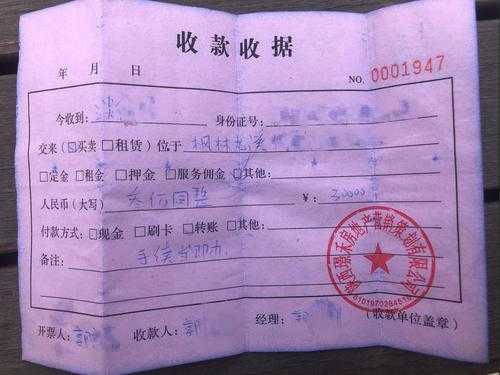 收款收据
年 月 日 NO. 0001947
今收到: 身份证号:
交来(☑买卖 ☐租赁)位于 枫林
☐定金 ☐租金 ☐押金 ☐服务佣金 ☐其他:
人民币(大写) 叁 整 ¥: 30000
付款方式: ☐现金 ☐刷卡 ☐转账 ☐其他:
备注: 手续
房地产营销策划有限公司
开票人: 郭 收款人: 郭 经理: 郭 (收款单位盖章)